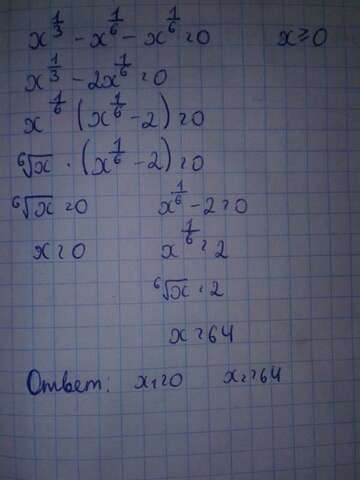 x^{1/3} - x^{1/6} - x^{1/6} = 0 x ≥ 0
x^{1/3} - 2x^{1/6} = 0
x^{1/6} (x^{1/6} - 2) = 0
⁶√x · (x^{1/6} - 2) = 0
⁶√x = 0 x^{1/6} - 2 = 0
x = 0 x^{1/6} = 2
⁶√x = 2
x = 64
Ответ: x₁ = 0 x₂ = 64